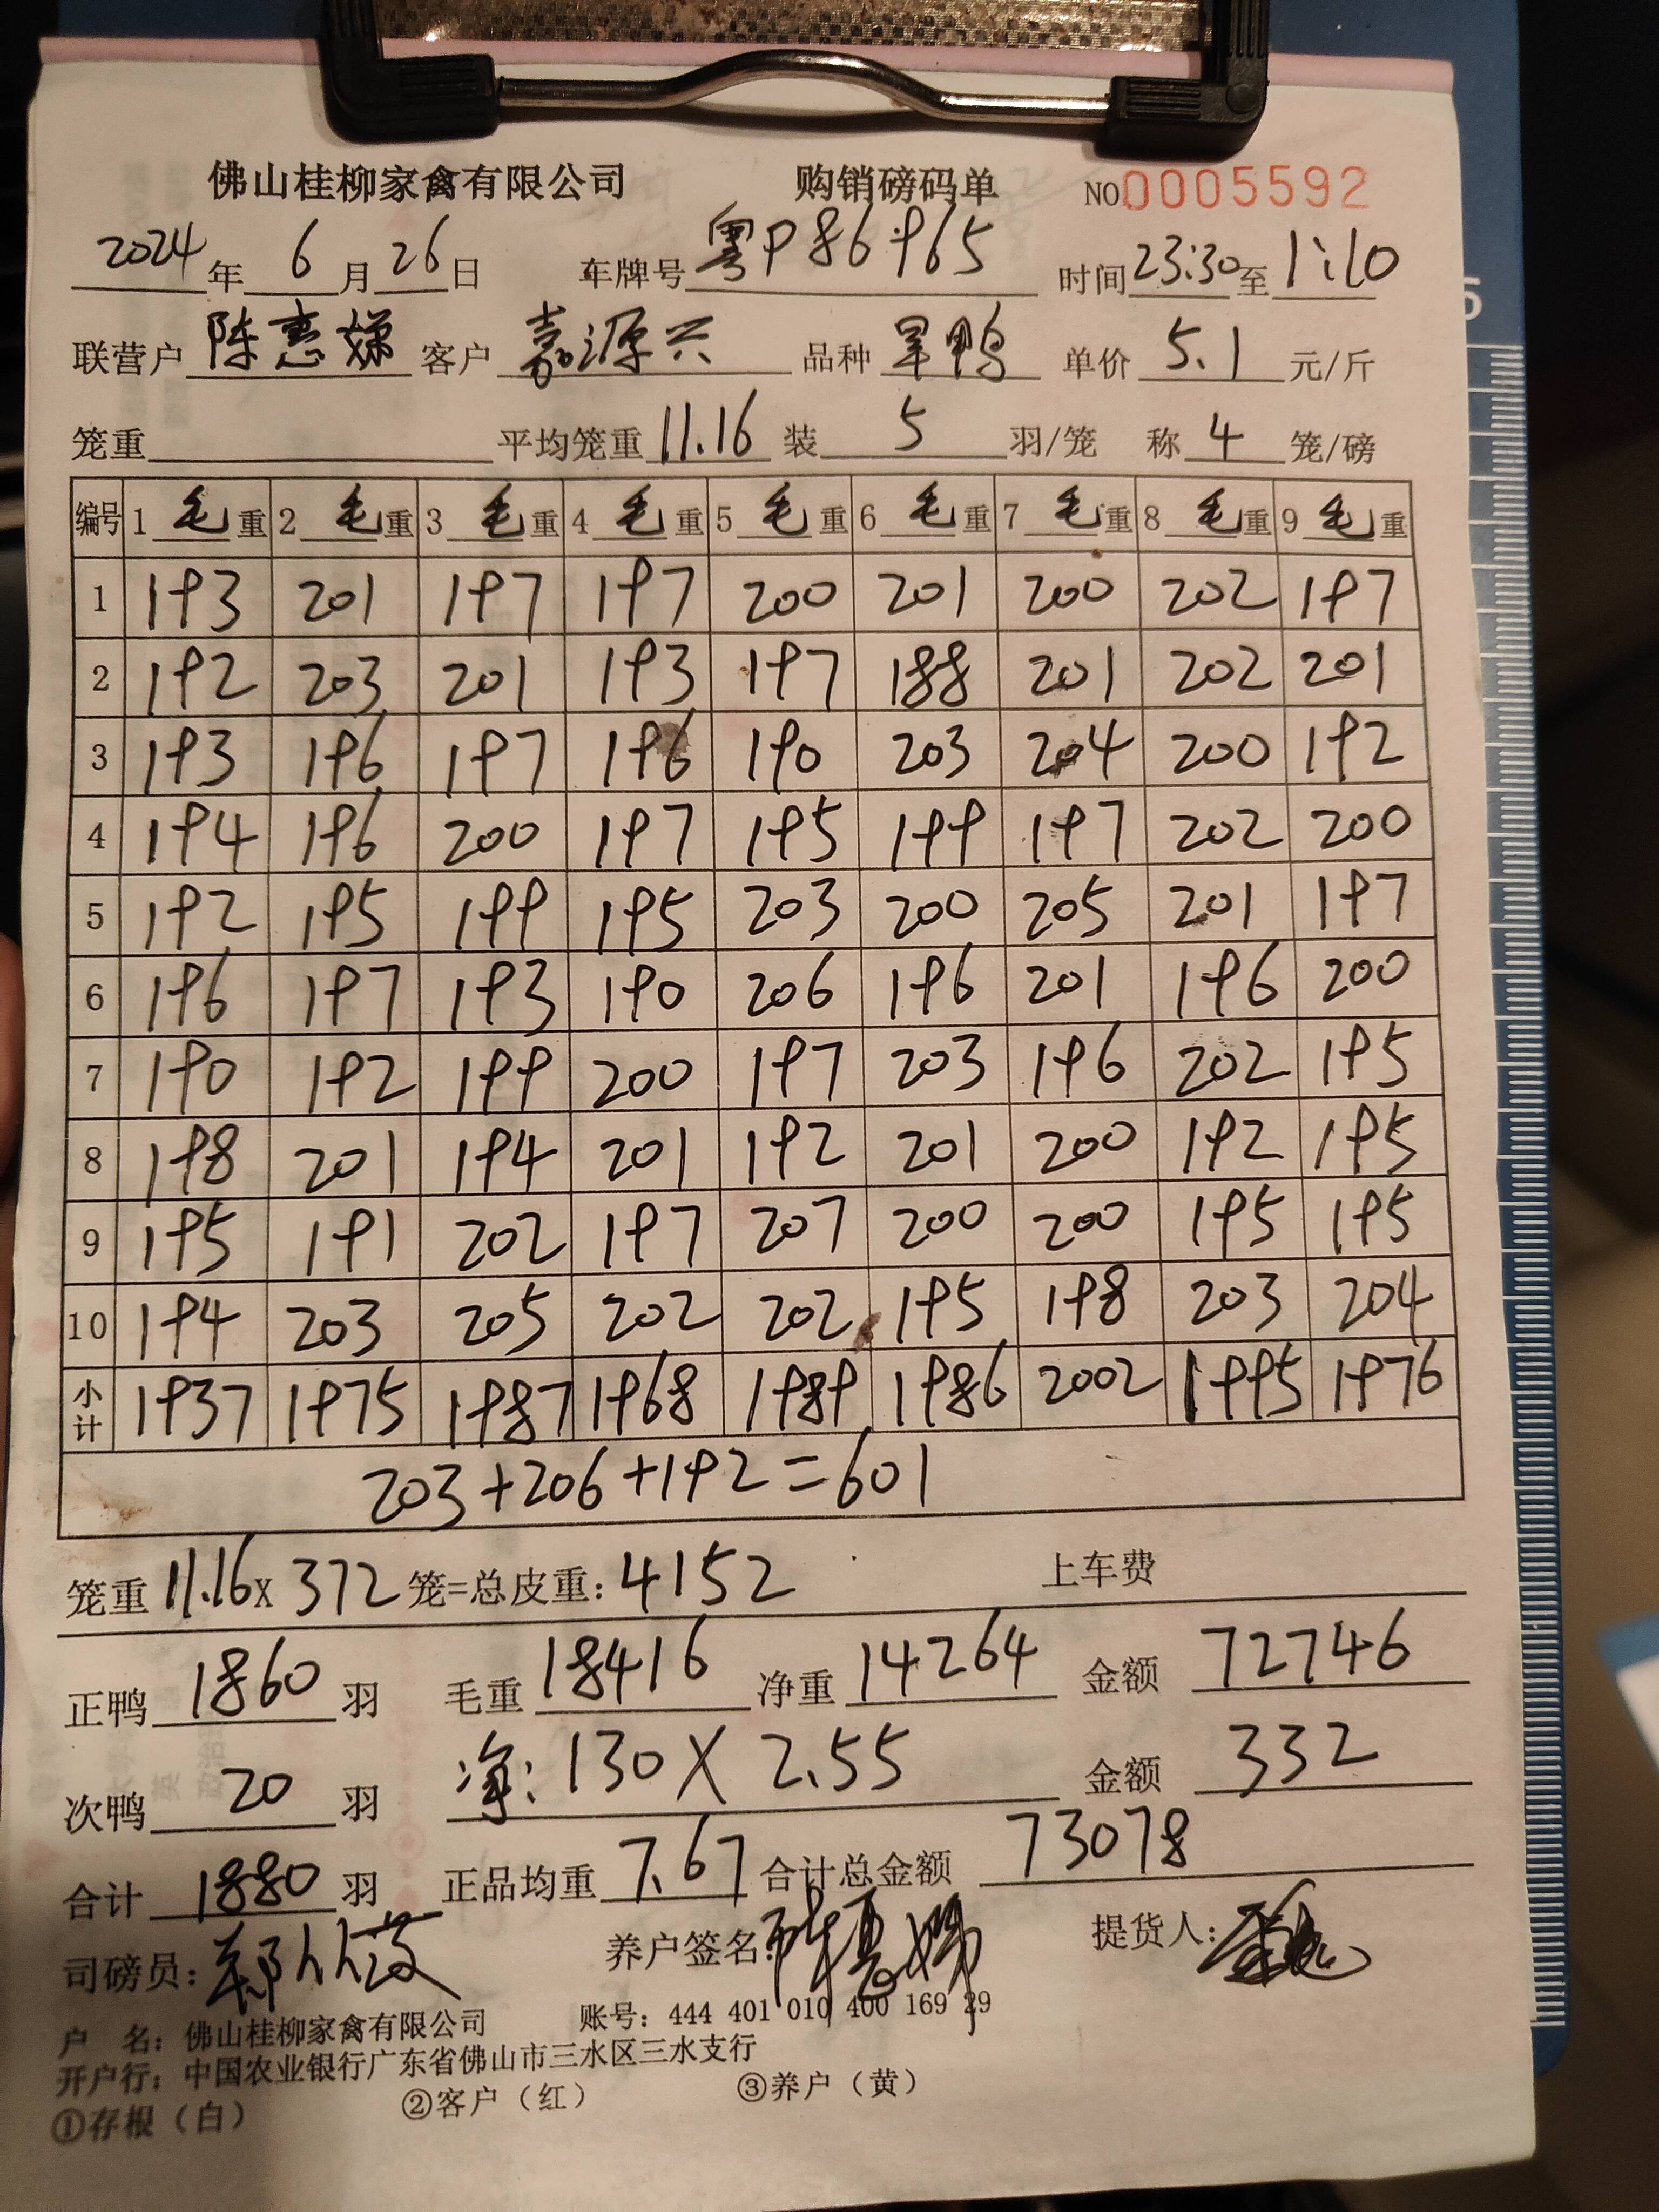 佛山桂柳家禽有限公司 购销磅码单 NO0005592
2024年 6月 26日 车牌号 粤P86965 时间 23:30 至 1:10
联营户 陈惠娣 客户 嘉源兴 品种 旱鸭 单价 5.1 元/斤
笼重 平均笼重 11.16 装 5 羽/笼 称 4 笼/磅
编号 1 毛重 2 毛重 3 毛重 4 毛重 5 毛重 6 毛重 7 毛重 8 毛重 9 毛重
1 193 201 197 197 200 201 200 202 197
2 192 203 201 193 197 188 201 202 201
3 193 196 197 196 190 203 204 200 192
4 194 196 200 197 195 199 197 202 200
5 192 195 199 195 203 200 205 201 197
6 196 197 193 190 206 196 201 196 200
7 190 192 199 200 197 203 196 202 195
8 198 201 194 201 192 201 200 192 195
9 195 191 202 197 207 200 200 195 195
10 194 203 205 202 202 195 198 203 204
小计 1937 1975 1987 1968 1989 1986 2002 1995 1976
203+206+192=601
笼重 11.16 x 372 笼=总皮重: 4152 上车费
正鸭 1860 羽 毛重 18416 净重 14264 金额 72746
次鸭 20 羽 净: 130 X 2.55 金额 332
合计 1880 羽 正品均重 7.67 合计总金额 73078
司磅员: 养户签名: 陈惠娣 提货人:
户 名: 佛山桂柳家禽有限公司 账号: 444 401 010 400 169 29
开户行: 中国农业银行广东省佛山市三水区三水支行
①存根（白） ②客户（红） ③养户（黄）